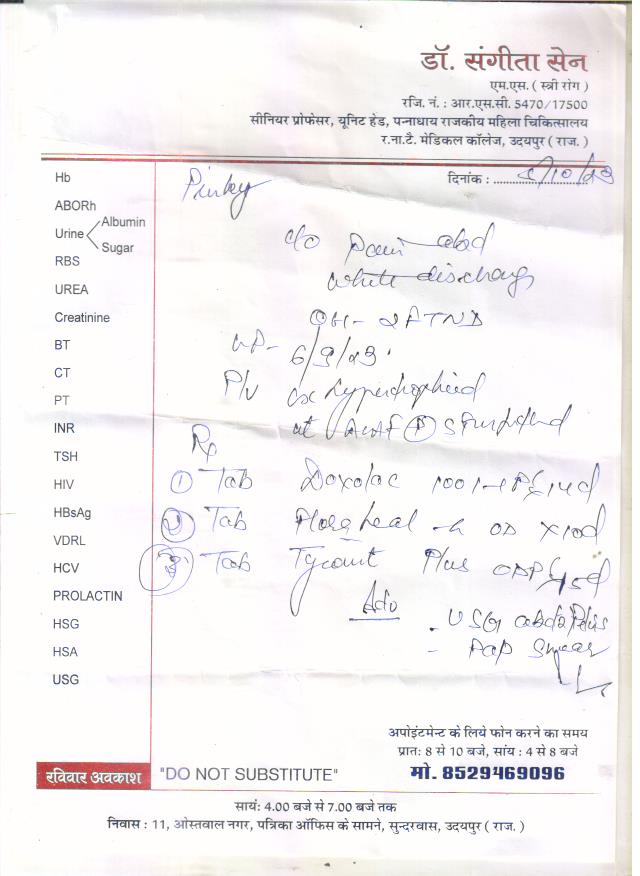 डॉ. संगीता सेन
एम.एस. ( स्त्री रोग )
रजि. नं. : आर.एस.सी. 5470/17500
सीनियर प्रोफेसर, यूनिट हेड, पन्नाधाय राजकीय महिला चिकित्सालय
र.ना.टै. मेडिकल कॉलेज, उदयपुर ( राज. )
दिनांक : /10/23
Pinky
Hb
ABORh
Urine Albumin
Sugar
RBS
UREA
Creatinine
BT
CT
PT
INR
TSH
HIV
HBsAg
VDRL
HCV
PROLACTIN
HSG
HSA
USG
c/o pain abd
white discharge
OH- 2FTND
6/9/23
P/V cx hypertrophied
Rx
① Tab 100
② Tab OD x 10d
③ Tab Plus
Adv
- USG abd
- Pap Smear
अपोइंटमेन्ट के लिये फोन करने का समय
प्रातः 8 से 10 बजे, सांय : 4 से 8 बजे
रविवार अवकाश "DO NOT SUBSTITUTE" मो. 8529469096
सायं: 4.00 बजे से 7.00 बजे तक
निवास : 11, ओस्तवाल नगर, पत्रिका ऑफिस के सामने, सुन्दरवास, उदयपुर ( राज. )